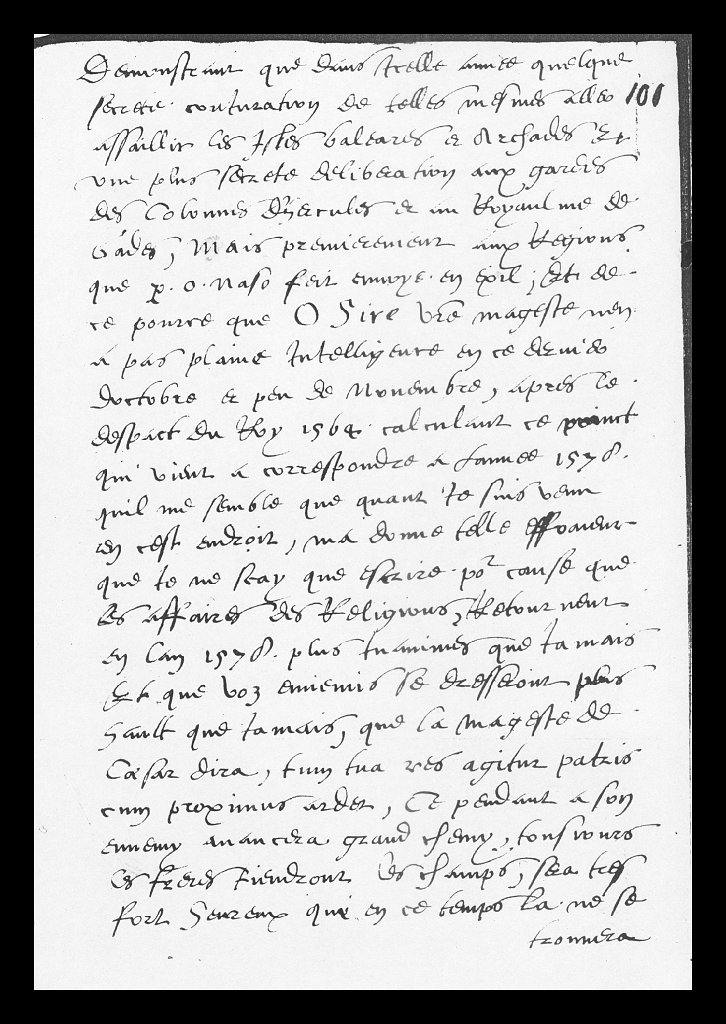 Demonstrant que dans Icelle annee quelque
secrete conturation de telles mesmes alleo
101
assaillir les Isles baleares et Archades Et
vne plus secrete deliberation aux gardes
des Colonnes d'hercules et au Royaulme de
Gades, Mais premierement aux Regions
que p. o. naso feit enuoye en exil, Et de
ce pource que O Sire vre mageste nen
a pas plaine Intelligence en ce dernier
doctobre et peu de Nouembre, apres le
despart du Roy 1564. calculant ce poinct
qui vient a correspondre a lannee 1578.
quil me semble que quant Ie suis venu
en cest endroit, ma donne telle effraieur
que Ie ne scay que escrire por cause que
les affaires des Religions, Retournent
en lan 1578. plus Inanimes que Iamais
Et que voz ennemis se dresseront plus
hault que Iamais, que la mageste de
Cæsar dira, tum tua res agitur patris
cum proximus ardet, Ce pendant a son
ennemy auancera grand chemy, tousiours
les freres tiendront les champs, sera tres
fort heureux que en ce temps la ne se
trouuera